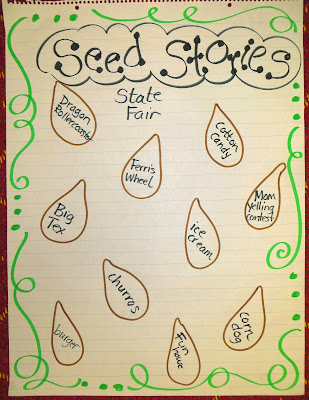 Seed Stories
State
Fair
Dragon
Rollercoaster
Cotton
Candy
Ferris
Wheel
Mom
Yelling
contest
Big
Tex
ice
cream
churros
burger
Fun
house
corn
dog